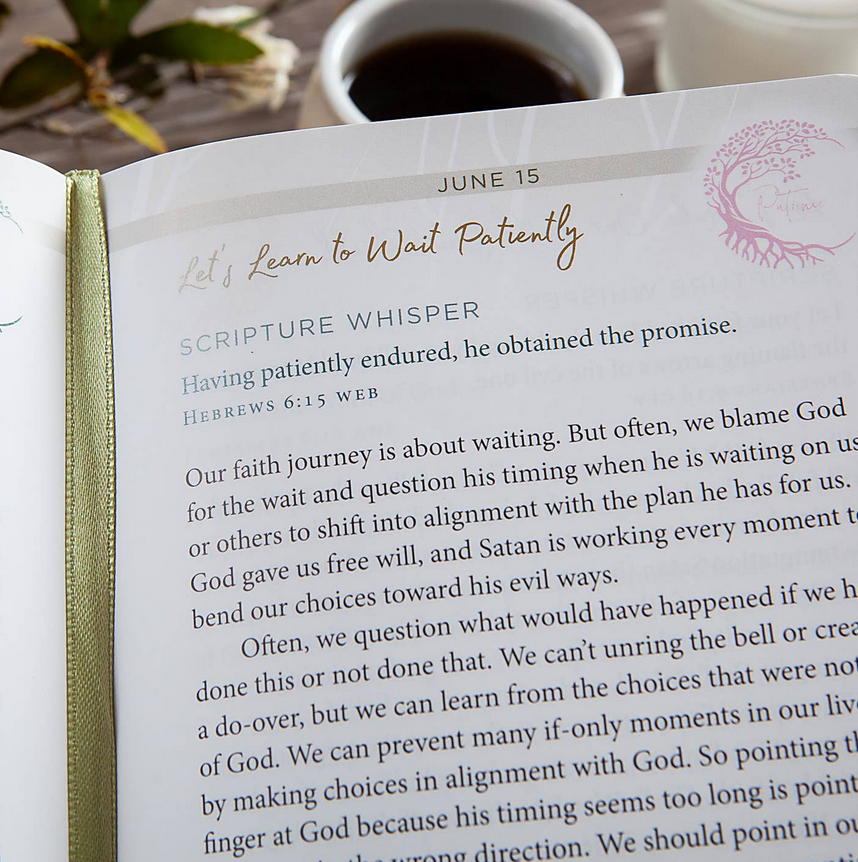 JUNE 15
Patience
Let's Learn to Wait Patiently
SCRIPTURE WHISPER
Having patiently endured, he obtained the promise.
HEBREWS 6:15 WEB
Our faith journey is about waiting. But often, we blame God
for the wait and question his timing when he is waiting on us
or others to shift into alignment with the plan he has for us.
God gave us free will, and Satan is working every moment to
bend our choices toward his evil ways.
Often, we question what would have happened if we h
done this or not done that. We can't unring the bell or crea
a do-over, but we can learn from the choices that were not
of God. We can prevent many if-only moments in our live
by making choices in alignment with God. So pointing th
finger at God because his timing seems too long is point
the wrong direction. We should point in ou